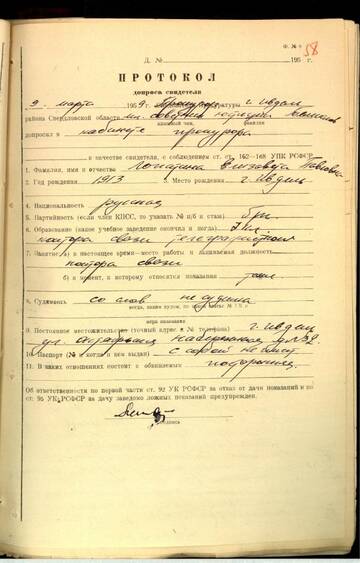 Ф. № 6
58
Д. № 195 г.
ПРОТОКОЛ
допроса свидетеля
9 марта 1959 г. прокуратуры г. Ивдель
района Свердловской области мл. советник юстиции
классный чин, фамилия
допросил в кабинете прокурора
в качестве свидетеля, с соблюдением ст. ст. 162—168 УПК РСФСР
1. Фамилия, имя и отчество Елизавета Павловна
2. Год рождения 1913 3. Место рождения г. Ивдель
4. Национальность русская
5. Партийность (если член КПСС, то указать № п/б и стаж) б/п
6. Образование (какое учебное заведение окончил и когда) 7 кл.
контора связи телеграфистка
7. Занятие: а) в настоящее время—место работы и занимаемая должность
контора связи
б) в момент, к которому относится показание тоже
8. Судимость со слов не судима
когда, каким судом, по какой статье УК
9. Постоянное местожительство (точный адрес и № телефона) г. Ивдель
ул. набережная д № 32
10. Паспорт (№ и когда и кем выдан) с собой не имеет
11. В каких отношениях состоит с обвиняемым посторонняя
Об ответственности по первой части ст. 92 УК РСФСР за отказ от дачи показаний и по
ст. 95 УК РСФСР за дачу заведомо ложных показаний предупрежден.
подпись